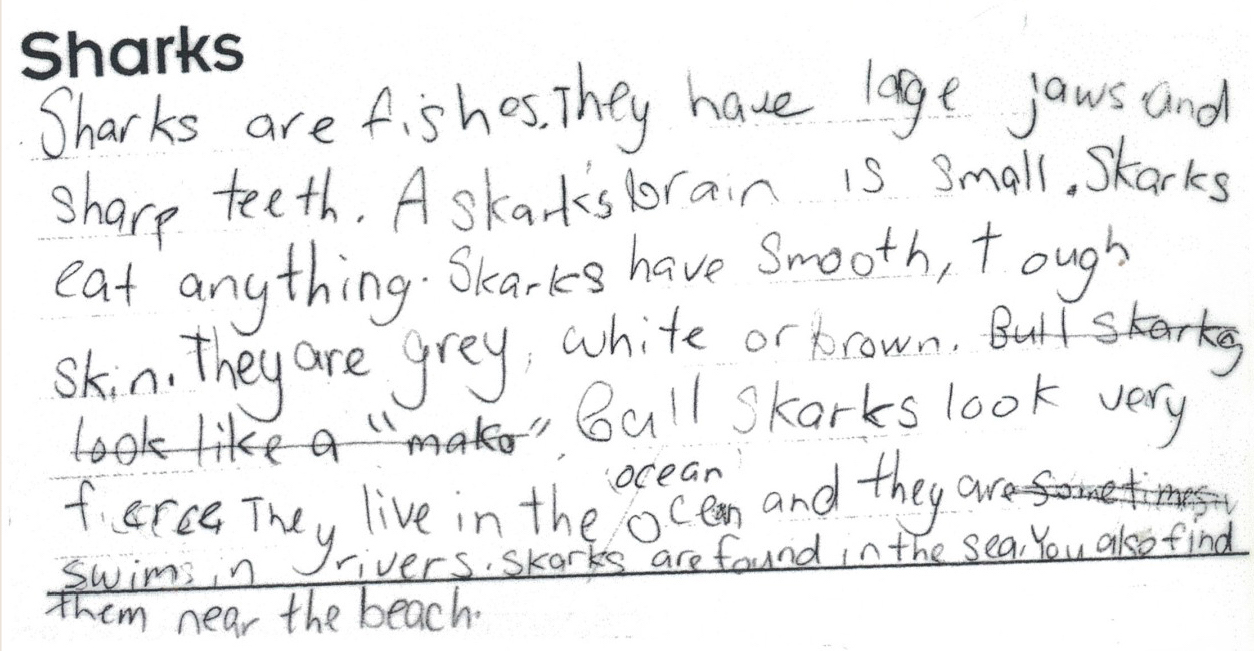 Sharks
Sharks are fishes. They have lage jaws and
sharp teeth. A skark's brain is small. Skarks
eat anything. Skarks have smooth, tough
skin. They are grey, white or brown. Bull skarks
look like a "mako". Bull Skarks look very
fierce They live in the ocean ocean and they are sometimes
swims in rivers. skarks are found in the sea. You also find
them near the beach.